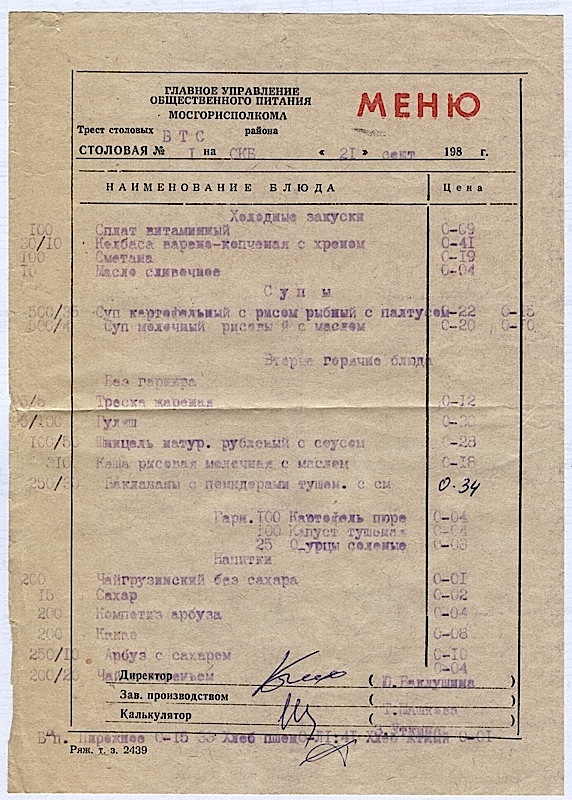 ГЛАВНОЕ УПРАВЛЕНИЕ
ОБЩЕСТВЕННОГО ПИТАНИЯ
МОСГОРИСПОЛКОМА
МЕНЮ
Трест столовых БТС района
СТОЛОВАЯ № I на СКБ « 21 » сент 198 г.
НАИМЕНОВАНИЕ БЛЮДА Цена
Холодные закуски
100 Сплат витаминный 0-09
/10 Колбаса варено-копченая с хреном 0-41
100 Сметана 0-19
10 Масло сливочное 0-04
Супы
500/35 Суп картофельный с рисом рыбный с палтусом 0-22
500/4 Суп молочный рисовый с маслом 0-20 0-10
Вторые горячие блюда
Без гарнира
Треска жареная 0-12
/100 Гуляш 0-30
100/50 Шницель натур. рубленый с соусом 0-28
310 Каша рисовая молочная с маслом 0-18
250/30 Баклажаны с помидорами тушен. с см 0.34
Гарн. 100 Картофель пюре 0-04
100 Капуст тушеная 0-04
25 О урцы соленые 0-03
Напитки
200 Чайгрузинский без сахара 0-01
15 Сахар 0-02
200 Компотиз арбуза 0-04
200 Какао 0-08
250/10 Арбуз с сахаром 0-10
200/20 Чай 0-04
Директор ( Ю.Баклушина )
Зав. производством ( )
Калькулятор ( )
Б\п. Пирожное 0-15 35 Хлеб пшен 0-01
Ряж. т. з. 2439